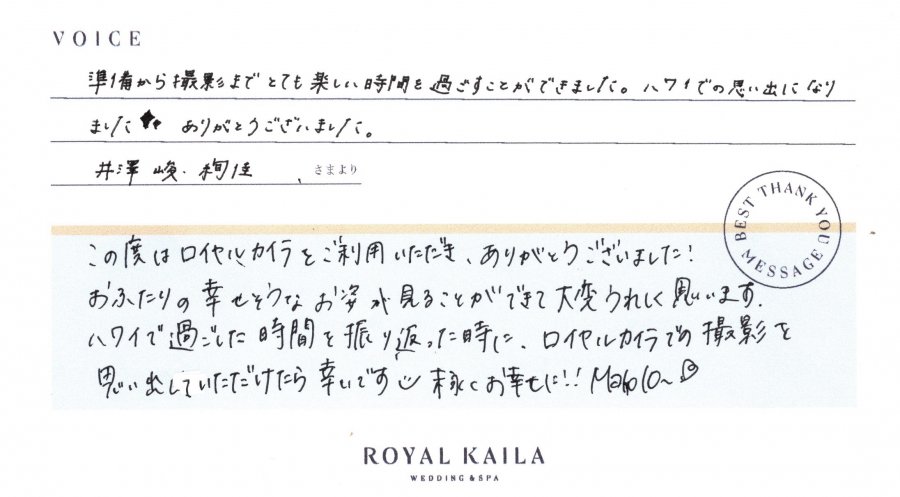 VOICE
準備から撮影までとても楽しい時間を過ごすことができました。ハワイでの思い出になり
ました ありがとうございました。
井澤 峻・絢佳 さまより
BEST THANK YOU MESSAGE
この度はロイヤルカイラをご利用いただき、ありがとうございました!
おふたりの幸せそうなお姿が見ることができて大変うれしく思います.
ハワイで過ごした時間を振り返った時に、ロイヤルカイラでの撮影を
思い出していただけたら幸いです 末永くお幸せに!! Mahalo~
ROYAL KAILA
WEDDING & SPA